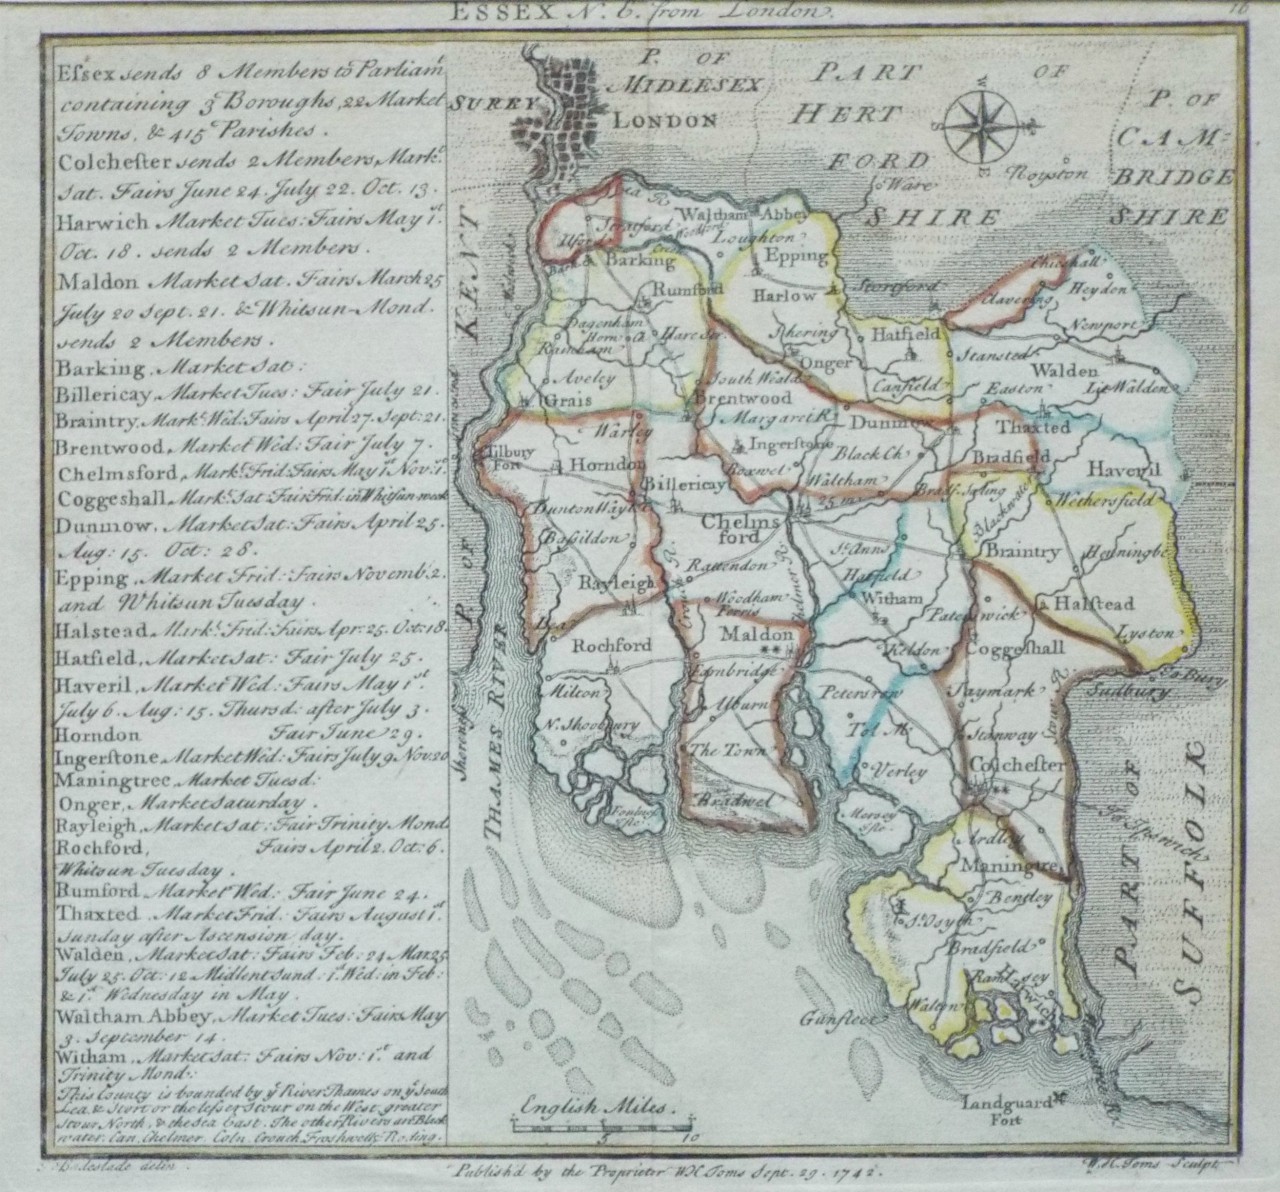 ESSEX N. E. from London.
16
Eſsex sends 8 Members to Parliamt
containing 3 Boroughs, 22 Market
Towns, & 415 Parishes.
Colcheſter sends 2 Members, Mark:
Sat. Fairs June 24. July 22. Oct. 13.
Harwich Market Tues: Fairs May 1st
Oct. 18. sends 2 Members.
Maldon Market Sat. Fairs March 25
July 20 Sept. 21. & Whitsun-Mond.
sends 2 Members.
Barking, Market Sat:
Billericay, Market Tues: Fair July 21.
Braintry, Mark: Wed: Fairs April 27. Sept: 21.
Brentwood, Market Wed: Fair July 7.
Chelmsford, Mark: Frid: Fairs May 1. Nov: 1st
Coggeshall, Mark: Sat Fair Frid. in Whitſun-week
Dunmow, Market Sat: Fairs April 25.
Aug: 15. Oct: 28.
Epping, Market Frid: Fairs Novemb: 2.
and Whitsun Tuesday.
Halstead, Mark: Frid: Fairs Apr. 25. Oct: 18.
Hatfield, Market Sat: Fair July 25.
Haveril, Market Wed: Fairs May 1st.
July 6. Aug: 15. Thursd: after July 3.
Horndon Fair June 29.
Ingerſtone, Market Wed: Fairs July 9. Nov. 20
Maningtree, Market Tuesd:
Onger, Market Saturday.
Rayleigh, Market Sat: Fair Trinity Mond:
Rochford, Fairs April 2. Oct: 6.
Whitsun Tuesday.
Rumford Market Wed: Fair June 24.
Thaxted. Market Frid: Fairs August 1st
Sunday after Ascension day.
Walden, Market Sat: Fairs Feb: 24 Mar. 25
July 25. Oct: 12 Midlent Sund: 1st Wed: in Feb:
& 1st Wednesday in May.
Waltham Abbey, Market Tues: Fairs May
3. September 14.
Witham, Market Sat: Fairs Nov: 1st and
Trinity Mond:
This County is bounded by ye River Thames on ye South
Lea & Stort or the leſser Stour on the West, greater
Stour North, & the Sea East. The other Rivers are Black
water, Can, Chelmer, Coln, Crouch, Froshwell, Roding.
P. OF
MIDLESEX
SURRY
LONDON
PART OF
HERT
FORD
SHIRE
P. OF
CAM
BRIDGE
SHIRE
Ware
Royston
KENT
P. OF
Woolwich
Lea R.
Stratford
Waltham Abbey
Woodford
Loughton
Ilford
Barking
Epping
Rumford
Harlow
Stortford
Chishall
Clavering
Heydon
Newport
Dagenham
Horn
Hare Str.
Rainham
Shering
Onger
Hatfield
Stansted
Walden
Aveley
South Weald
Canfield
Easton
Lit Walden
Grais
Brentwood
Margaret R.
Dunmow
Thaxted
Warley
Tilbury
Fort
Horndon
Ingerstone
Black Ch.
Boxwel
Bradfield
Haveril
Billericay
Waltham
25 m
Bardf. Saling
Wethersfield
Dunton Wayl
Chelms
ford
Blackwater
Basildon
St. Anns
Braintry
Henningh
Rayleigh
Rattendon
Hatfield
Witham
Crouch R.
Chelmer R.
Woodham
Ferris
Pateswick
Halstead
Lea
Maldon
Lyston
Rochford
Keldon
Coggeshall
Farnbridge
Sudbury
To Bury
Milton
Alburn
Saymark
Stour R.
N. Shoobury
Tol. M.
Stanway
The Town
Verley
Colchester
Foulneſs
Iſle
Bradwel
Mersey
Iſle
To Ipswich
Ardley
Maningtre
PART OF
SUFFOLK
THAMES RIVER
Sheerneſs
Bentley
St. Osyth
Bradfield
Ramsey
Harwich
Walton
Gunfleet
Landguard
Fort
English Miles.
5 10
Badeslade delin.
Publish'd by the Proprietor W.H. Toms Sept. 29. 1742.
W.H. Toms Sculpt.